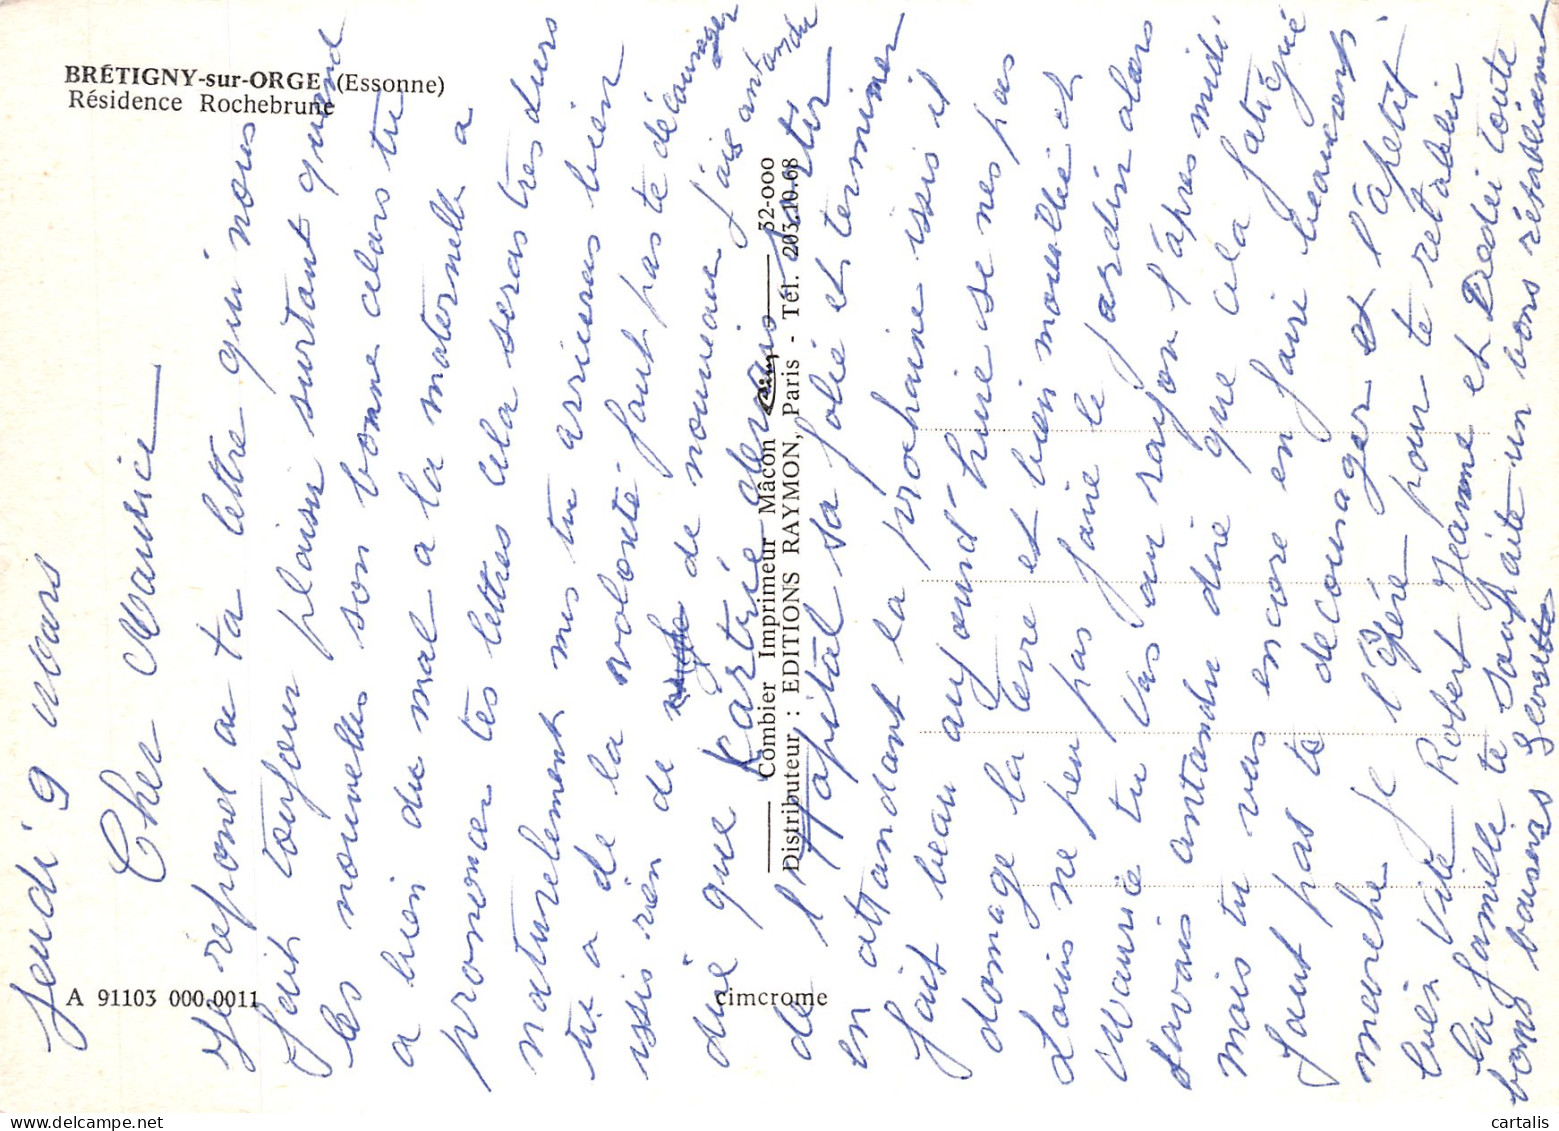 BRÉTIGNY-sur-ORGE (Essonne)
Résidence Rochebrune
Combier Imprimeur Mâcon 32-000
Distributeur : EDITIONS RAYMON, Paris - Tél. 203.10.68
A 91103 000.0011
cimcrome
Jeudi 9 Mars
Cher Maurice
Je repond a ta lettre qui nous
fait toujour plaisir surtant quend
les nouvelles son bonne alors tu
a bien du mal a la maternelle a
prononcer tes lettres cela seras tres durs
naturelement mis tu arriveras bien
tu a de la volonté faut pas te découmager
issis rien de de nouveau j'ais antandu
dire que Kartrié devais sortir
de l'Hapital sa folie et terminer
en attandant la prochaine issis il
fait beau aujourd'huie se nes pas
domage la terre et bien mouillié et
Louis ne peu pas faire le jardin alors
Maurice tu vas au rayon l'apres midi
savais antandu dire que cela fatigué
mais tu vas encore en faire beaucoup
faut pas te decourager et l'apetit
marche Je l'éspére pour te retablir
bien vite Robert Jeanne et Dédé toute
la famille te souhaite un bons rétablisment
bons baisers Ginette
cartalis